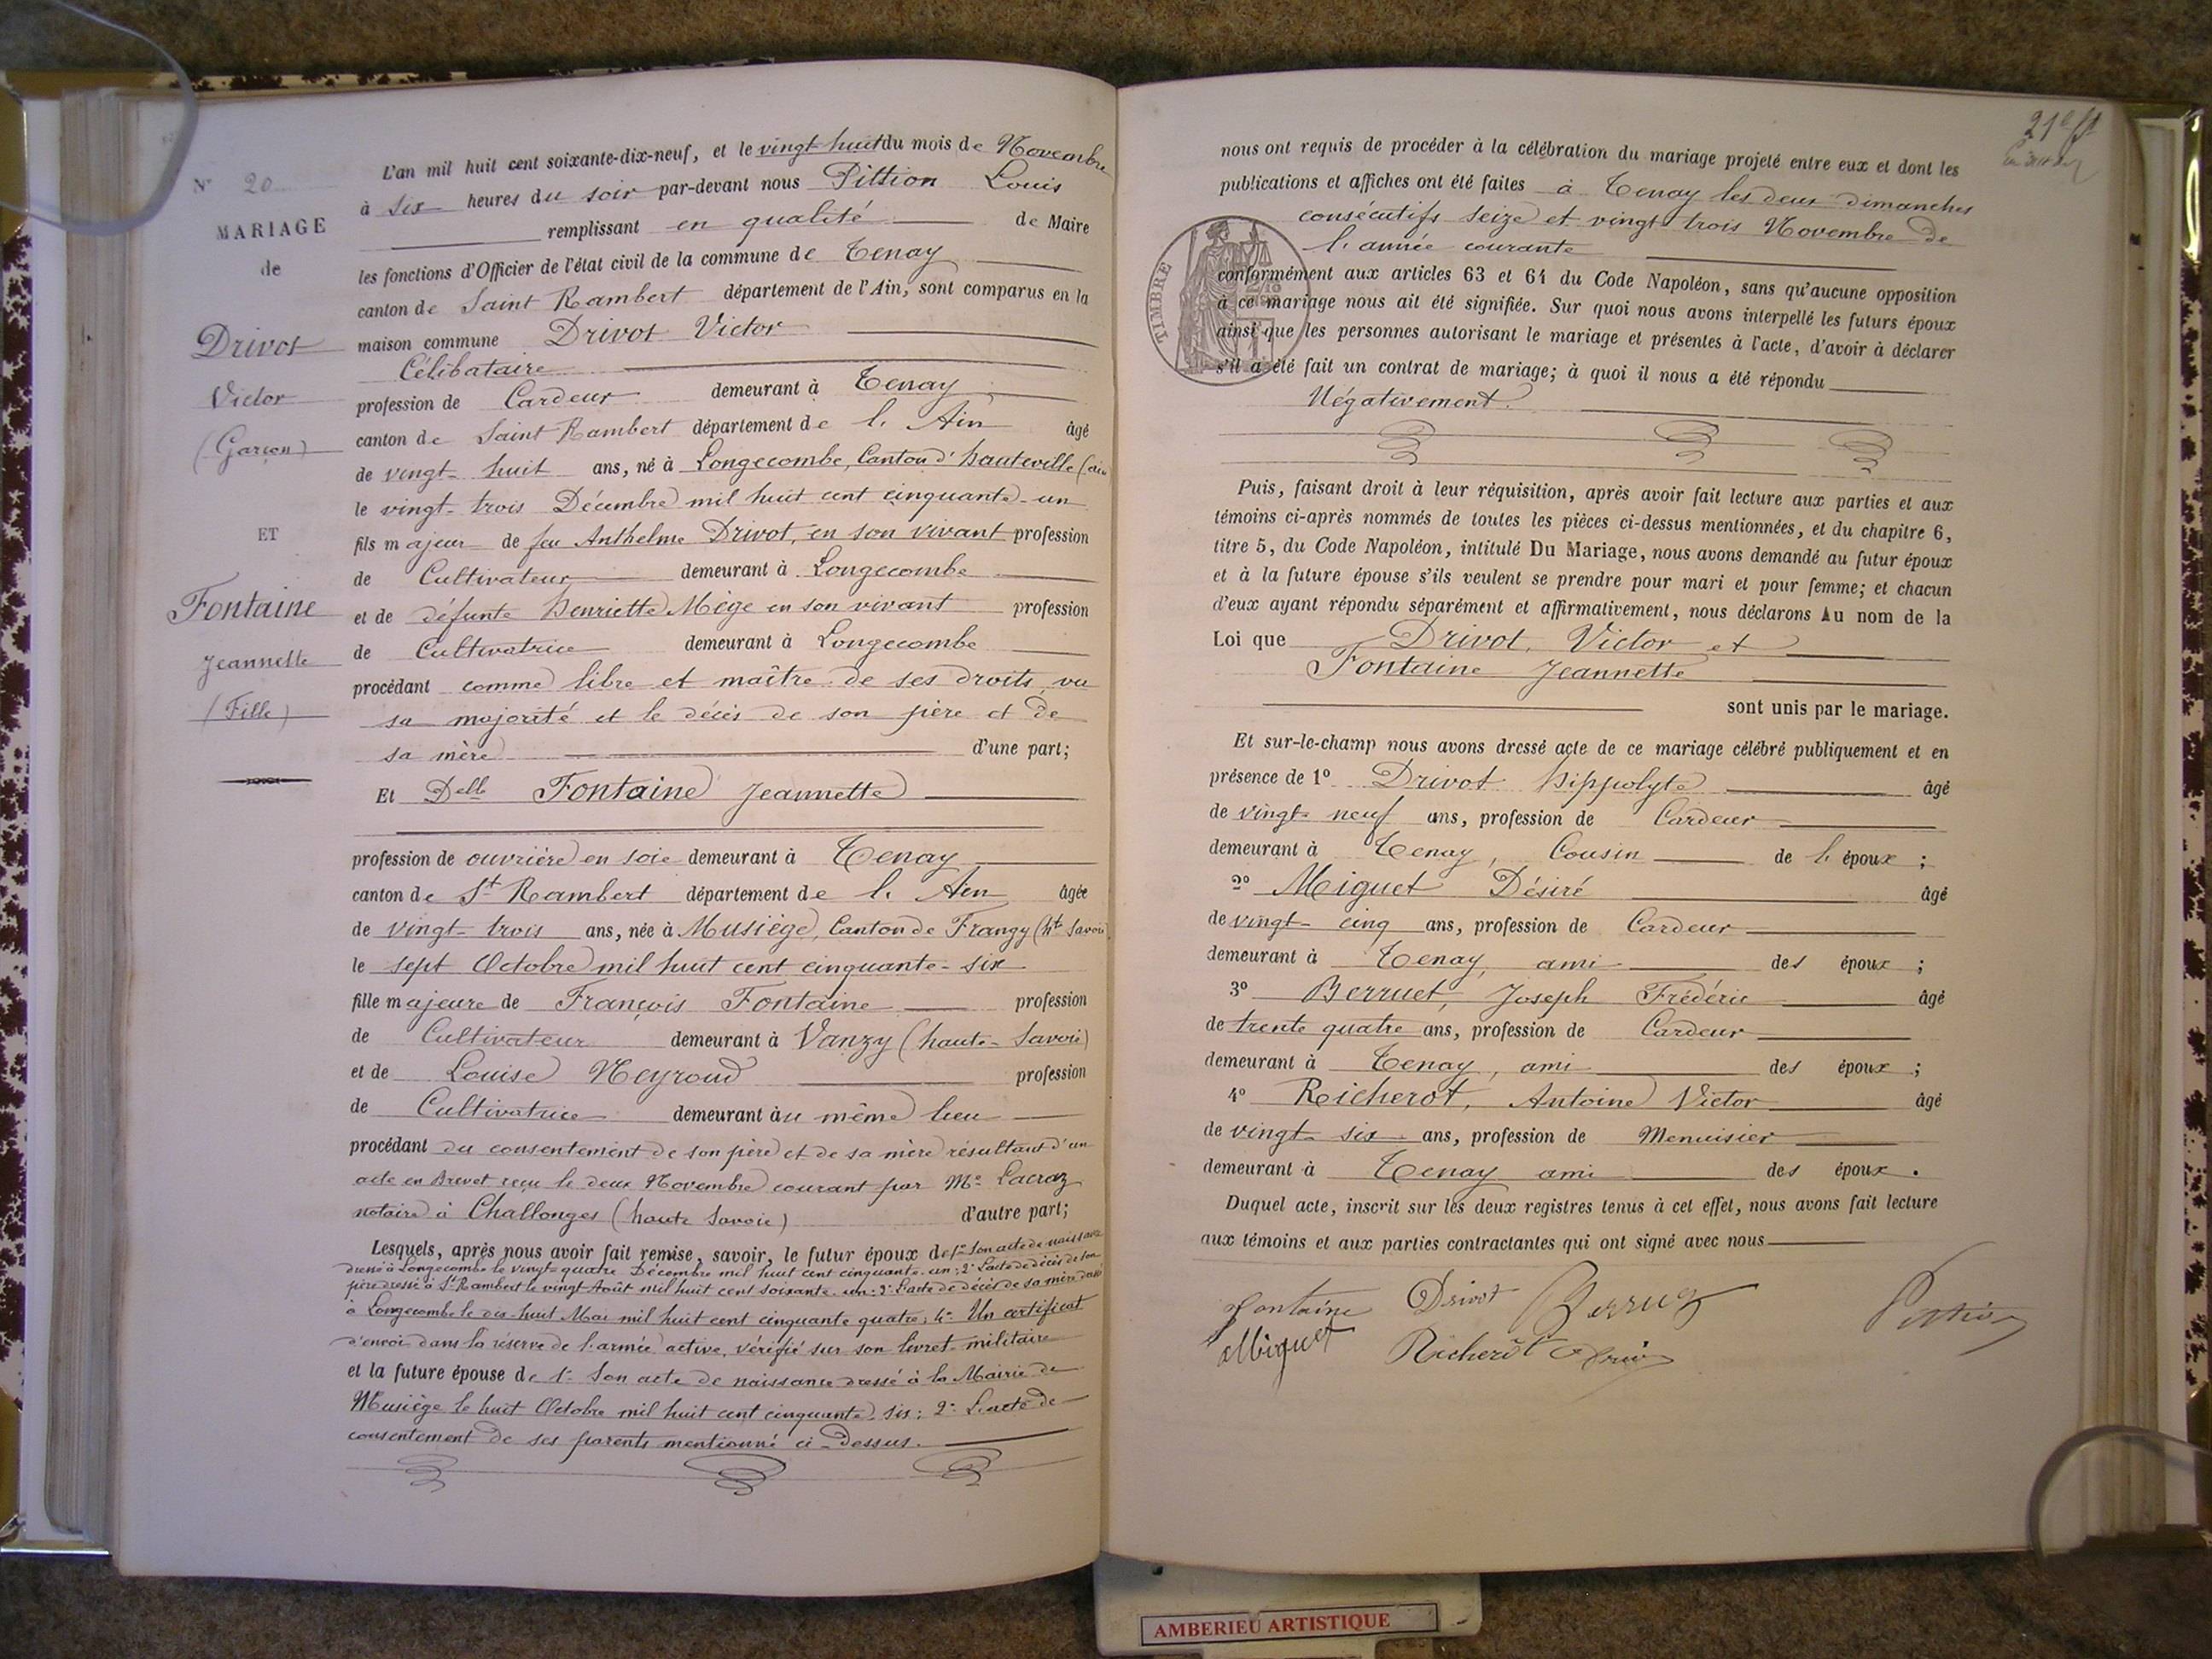 N° 20
MARIAGE
de
Drivot
Victor
(Garçon)
ET
Fontaine
Jeannette
(Fille)
L'an mil huit cent soixante-dix-neuf, et le vingt-huit du mois de Novembre
à six heures du soir par-devant nous Pittion Louis
remplissant en qualité de Maire
les fonctions d'Officier de l'état civil de la commune de Tenay
canton de Saint Rambert département de l'Ain, sont comparus en la
maison commune Drivot Victor
Célibataire
profession de Cardeur demeurant à Tenay
canton de Saint Rambert département de l'Ain âgé
de vingt-huit ans, né à Longecombe, Canton d'hauteville (ain
le vingt-trois Décembre mil huit cent cinquante-un
fils majeur de feu Anthelme Drivot, en son vivant profession
de Cultivateur demeurant à Longecombe
et de défunte henriette Mège en son vivant profession
de Cultivatrice demeurant à Longecombe
procédant comme libre et maître de ses droits, vu
sa majorité et le décès de son père et de
sa mère d'une part;
Et Delle Fontaine Jeannette
profession de ouvrière en soie demeurant à Tenay
canton de St Rambert département de l'Ain âgée
de vingt-trois ans, née à Musiège, Canton de Frangy (hte Savoie)
le sept Octobre mil huit cent cinquante-six
fille majeure de François Fontaine profession
de Cultivateur demeurant à Vanzy (haute-Savoie)
et de Louise Neyroud profession
de Cultivatrice demeurant au même lieu
procédant du consentement de son père et de sa mère résultant d'un
acte en Brevet reçu le deux Novembre courant par Me Lacraz
notaire à Challonges (haute Savoie) d'autre part;
Lesquels, après nous avoir fait remise, savoir, le futur époux de 1° Son acte de naissance
dressé à Longecombe le vingt-quatre Décembre mil huit cent cinquante-un; 2° L'acte de décès de son
père dressé à St Rambert le vingt Août mil huit cent soixante-un; 3° L'acte de décès de sa mère dressé
à Longecombe le dix-huit Mai mil huit cent cinquante quatre; 4° Un certificat
d'envoi dans la réserve de l'armée active, vérifié sur son livret militaire
et la future épouse de 1° Son acte de naissance dressé à la Mairie de
Musiège le huit Octobre mil huit cent cinquante-six; 2° L'acte de
consentement de ses parents mentionné ci-dessus.
21e
nous ont requis de procéder à la célébration du mariage projeté entre eux et dont les
publications et affiches ont été faites à Tenay les deux dimanches
consécutifs seize et vingt-trois Novembre de
l'année courante
TIMBRE
conformément aux articles 63 et 64 du Code Napoléon, sans qu'aucune opposition
à ce mariage nous ait été signifiée. Sur quoi nous avons interpellé les futurs époux
ainsi que les personnes autorisant le mariage et présentes à l'acte, d'avoir à déclarer
s'il a été fait un contrat de mariage; à quoi il nous a été répondu
Négativement.
Puis, faisant droit à leur réquisition, après avoir fait lecture aux parties et aux
témoins ci-après nommés de toutes les pièces ci-dessus mentionnées, et du chapitre 6,
titre 5, du Code Napoléon, intitulé Du Mariage, nous avons demandé au futur époux
et à la future épouse s'ils veulent se prendre pour mari et pour femme; et chacun
d'eux ayant répondu séparément et affirmativement, nous déclarons Au nom de la
Loi que Drivot, Victor et
Fontaine Jeannette
sont unis par le mariage.
Et sur-le-champ nous avons dressé acte de ce mariage célébré publiquement et en
présence de 1° Drivot hippolyte âgé
de vingt-neuf ans, profession de Cardeur
demeurant à Tenay, Cousin de l'époux ;
2° Miguet Désiré âgé
de vingt-cinq ans, profession de Cardeur
demeurant à Tenay, ami des époux ;
3° Berruet, Joseph Frédéric âgé
de trente quatre ans, profession de Cardeur
demeurant à Tenay, ami des époux ;
4° Richerot, Antoine Victor âgé
de vingt-six ans, profession de Menuisier
demeurant à Tenay ami des époux .
Duquel acte, inscrit sur les deux registres tenus à cet effet, nous avons fait lecture
aux témoins et aux parties contractantes qui ont signé avec nous
Fontaine Drivot Pittion
Miguet Richerot
AMBERIEU ARTISTIQUE